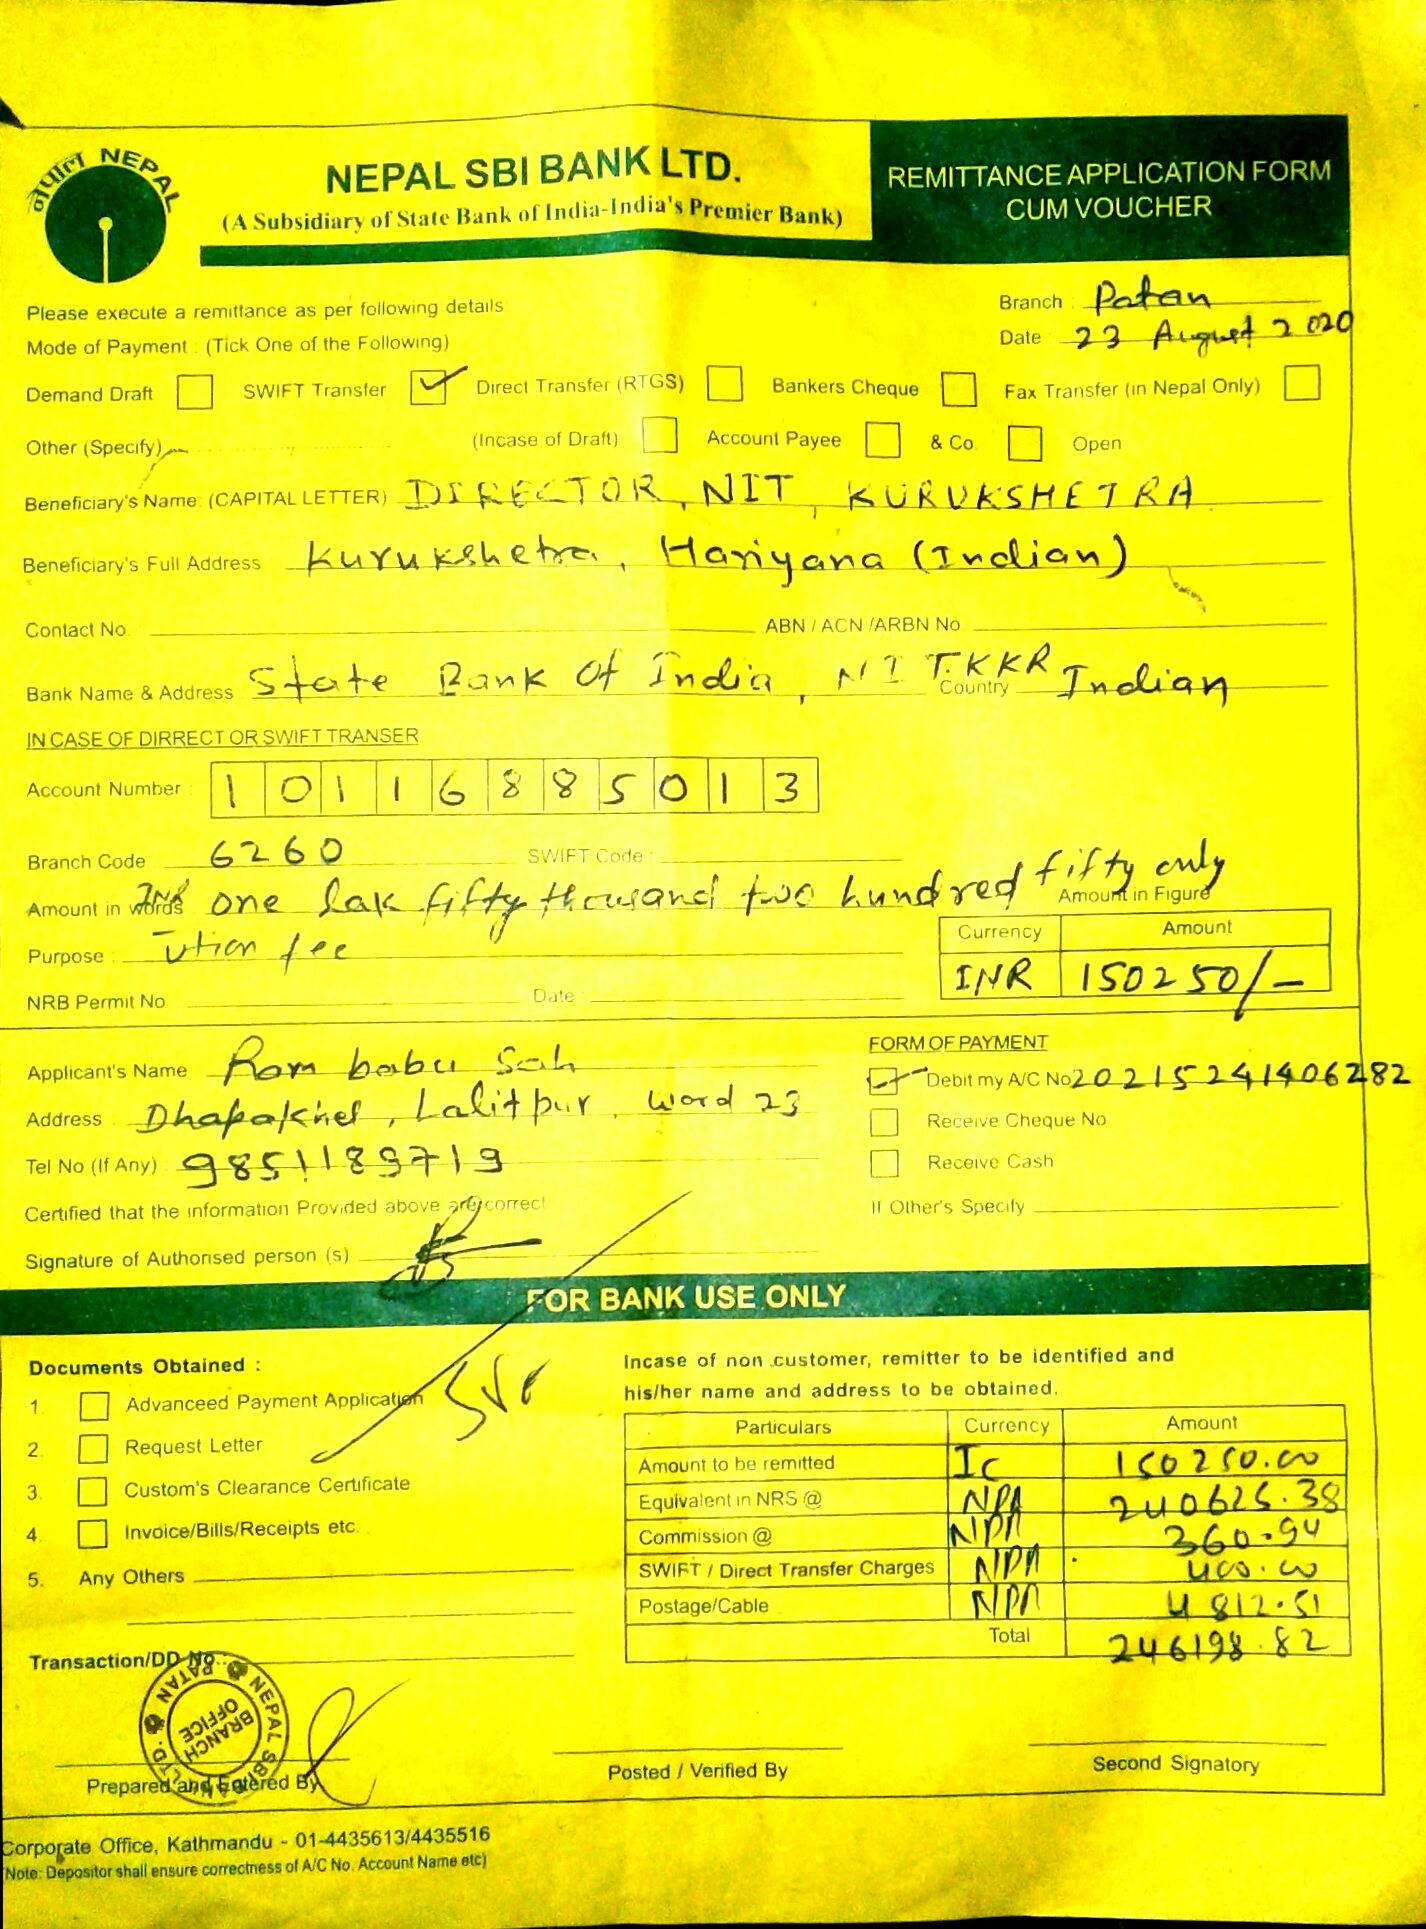 नेपाल NEPAL
NEPAL SBI BANK LTD.
(A Subsidiary of State Bank of India-India's Premier Bank)
REMITTANCE APPLICATION FORM
CUM VOUCHER
Please execute a remittance as per following details
Branch : Patan
Mode of Payment : (Tick One of the Following)
Date : 23 August 2020
Demand Draft SWIFT Transfer ✓ Direct Transfer (RTGS) Bankers Cheque Fax Transfer (in Nepal Only)
Other (Specify) (Incase of Draft) Account Payee & Co. Open
Beneficiary's Name: (CAPITAL LETTER) DIRECTOR, NIT, KURUKSHETRA
Beneficiary's Full Address Kurukshetra, Hariyana (Indian)
Contact No. ABN / ACN /ARBN No
Bank Name & Address State Bank Of India, NIT.KKR Country Indian
IN CASE OF DIRRECT OR SWIFT TRANSER
Account Number : 10116885013
Branch Code 6260 SWIFT Code :
Amount in words INR one lak fifty thousand two hundred fifty only
Amount in Figure
Purpose : ution fee
Currency Amount
INR 150250/-
NRB Permit No Date :
Applicant's Name Ram babu Sah
FORM OF PAYMENT
Debit my A/C No 20215241406282
Address Dhapakhel, Lalitpur, Word 23
Receive Cheque No
Tel No (If Any) 9851189719
Receive Cash
Certified that the information Provided above are correct
If Other's Specify
Signature of Authorised person (s)
FOR BANK USE ONLY
Documents Obtained :
1. Advanceed Payment Application
2. Request Letter
3. Custom's Clearance Certificate
4. Invoice/Bills/Receipts etc.
5. Any Others
Incase of non customer, remitter to be identified and
his/her name and address to be obtained.
Particulars Currency Amount
Amount to be remitted Ic 150250.00
Equivalent in NRS @ 240625.38
Commission @ 360.94
SWIFT / Direct Transfer Charges 400.00
Postage/Cable 4812.51
Total 246198.82
Transaction/DD No.
NEPAL SBI BANK LTD. PATAN
BRANCH
OFFICE
Prepared and Entered By
Posted / Verified By
Second Signatory
Corporate Office, Kathmandu - 01-4435613/4435516
Note: Depositor shall ensure correctness of A/C No. Account Name etc)